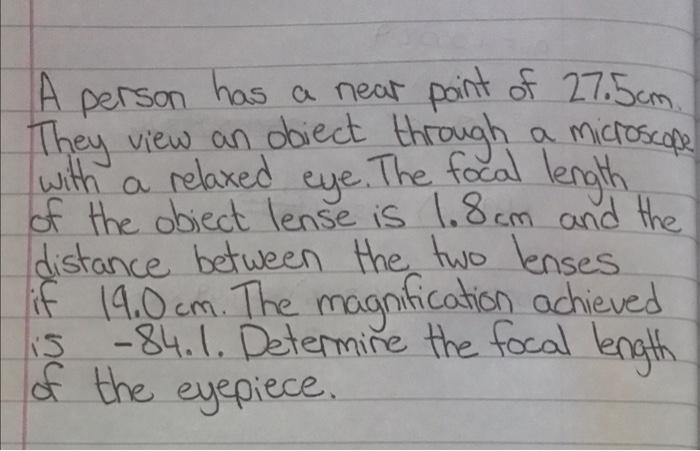 A person has a near point of 27.5cm.
They view an obiect through a microscope
with a relaxed eye. The focal length
of the obiect lense is 1.8cm and the
distance between the two lenses
if 19.0cm. The magnification achieved
is -84.1. Determine the focal length
of the eyepiece.